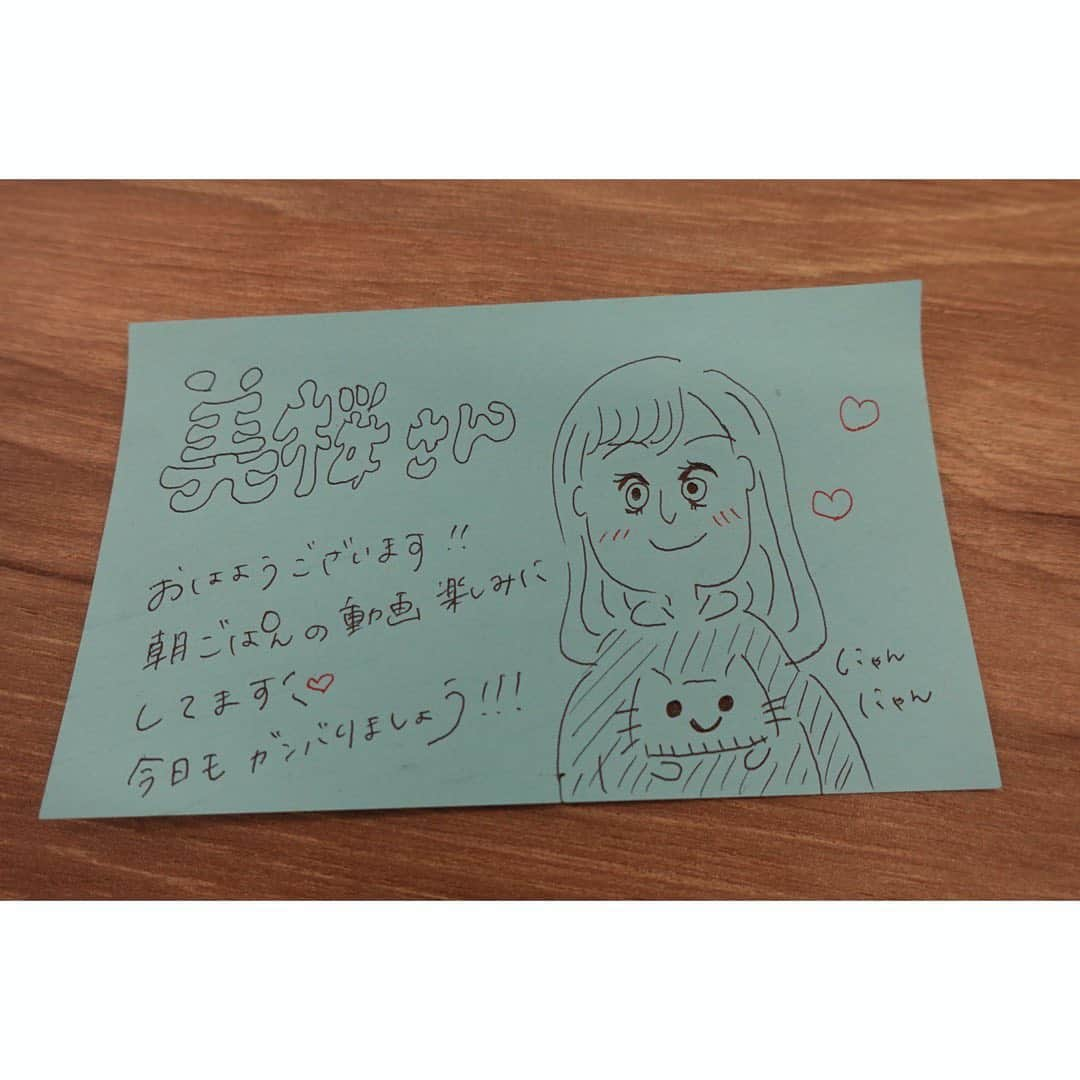 美桜さん
おはようございます!!
朝ごぱんの動画楽しみに
してます〜♡
今日もガンバりましょう!!!
にゃん
にゃん